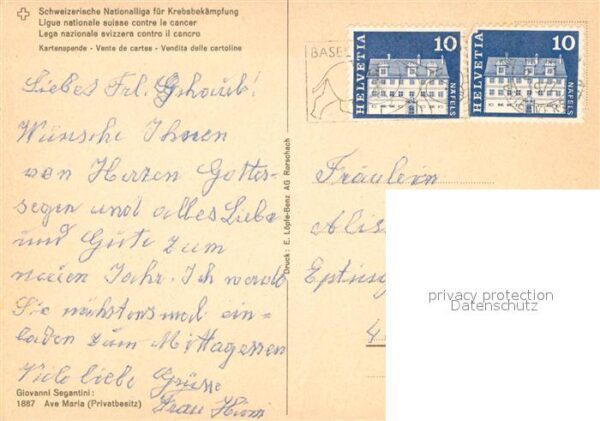 Schweizerische Nationalliga für Krebsbekämpfung
Ligue nationale suisse contre le cancer
Lega nazionale svizzera contro il cancro
Kartenspende - Vente de cartes - Vendita delle cartoline
BASEL
10
HELVETIA
NÄFELS
10
HELVETIA
NÄFELS
Liebes Frl.
Wünsche Ihnen
von Herzen Gottes-
segen und alles Liebe
und Gute zum
neuen Jahr. Ich werde
Sie nächstens mal ein-
laden zum Mittagessen
Viele liebe Grüsse
Frau
Giovanni Segantini:
1887 Ave Maria (Privatbesitz)
Druck: E. Löpfe-Benz AG Rorschach
Fräulein
Alis
Epting
4
privacy protection
Datenschutz